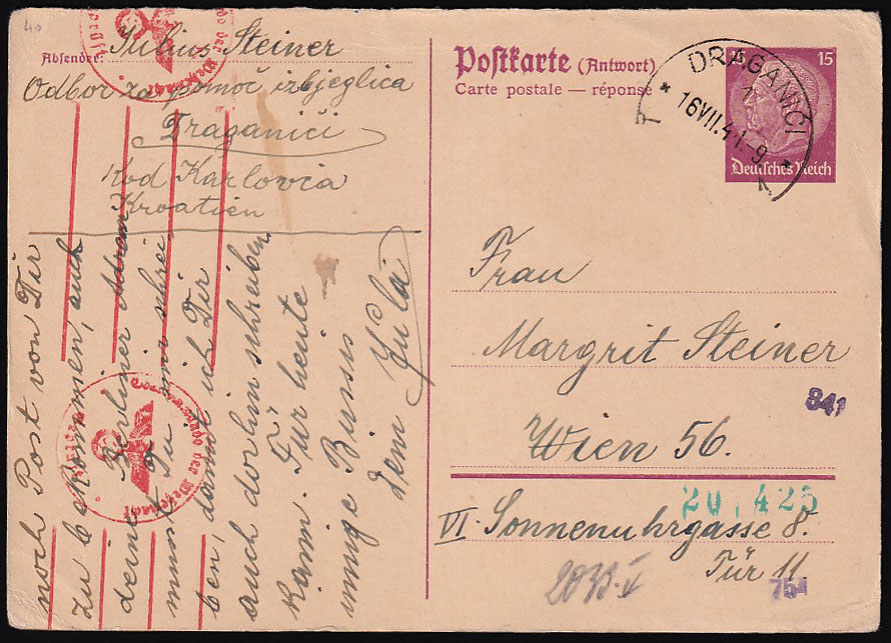 40
Absender: Julius Steiner
Odbor za pomoč izbjeglica
Draganiči
Kod Karlovca
Kroatien
Postkarte (Antwort)
Carte postale — réponse
15
Deutsches Reich
DRAGANIĆI
16 VII. 41.-9
Frau
Margrit Steiner
Wien 56.
VI. Sonnenuhrgasse 8.
Tür 11
841
20.425
754
noch Post von Dir
zu bekommen, auch
deine Berliner
musst Du mir schrei
ben, damit ich Dir
auch dorhin schreiben
kann. Für heute
innige Bussis
dein Jula
Oberkommando der Wehrmacht